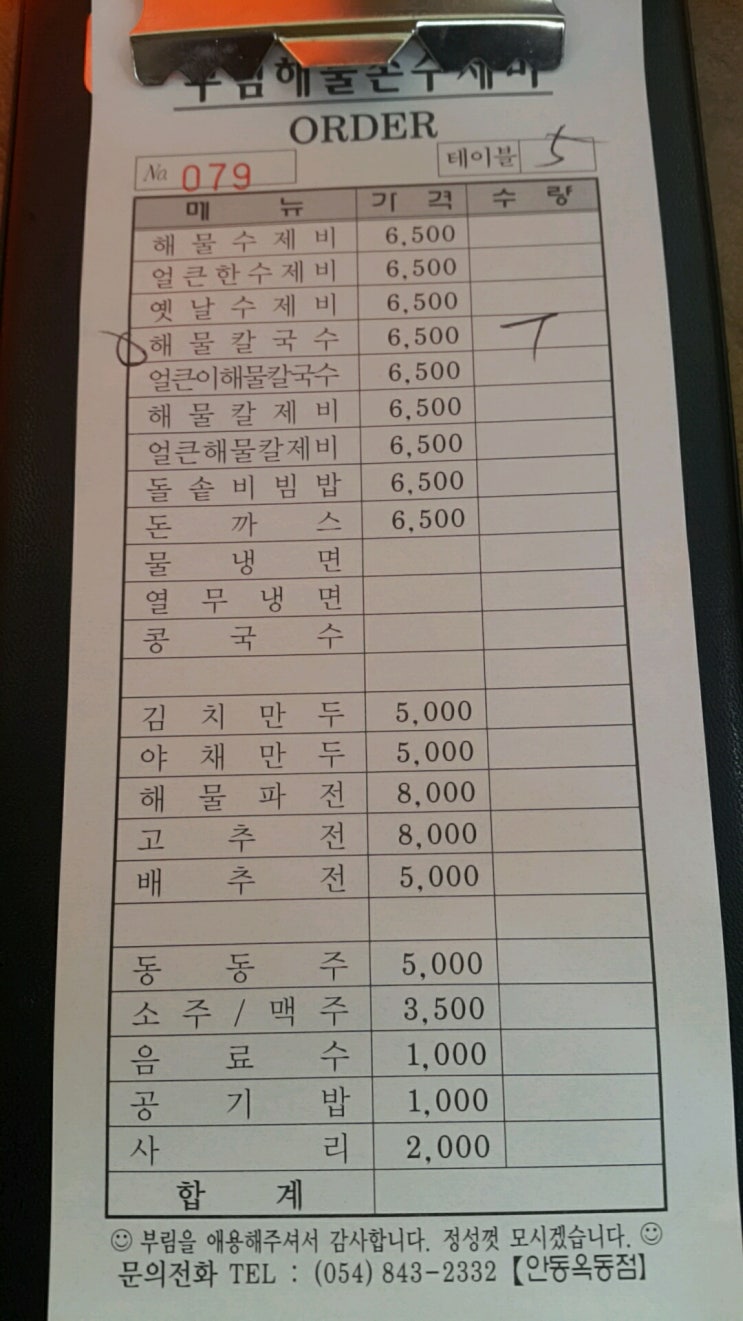 부림해물손수제비
ORDER
No. 079 테이블 5
메 뉴 가 격 수 량
해물수제비 6,500
얼큰한수제비 6,500
옛날수제비 6,500
해물칼국수 6,500
얼큰이해물칼국수 6,500
해물칼제비 6,500
얼큰해물칼제비 6,500
돌솥비빔밥 6,500
돈까스 6,500
물냉면
열무냉면
콩국수
김치만두 5,000
야채만두 5,000
해물파전 8,000
고추전 8,000
배추전 5,000
동동주 5,000
소주/맥주 3,500
음료수 1,000
공기밥 1,000
사리 2,000
합 계
☺ 부림을 애용해주셔서 감사합니다. 정성껏 모시겠습니다. ☺
문의전화 TEL : (054) 843-2332 【안동옥동점】